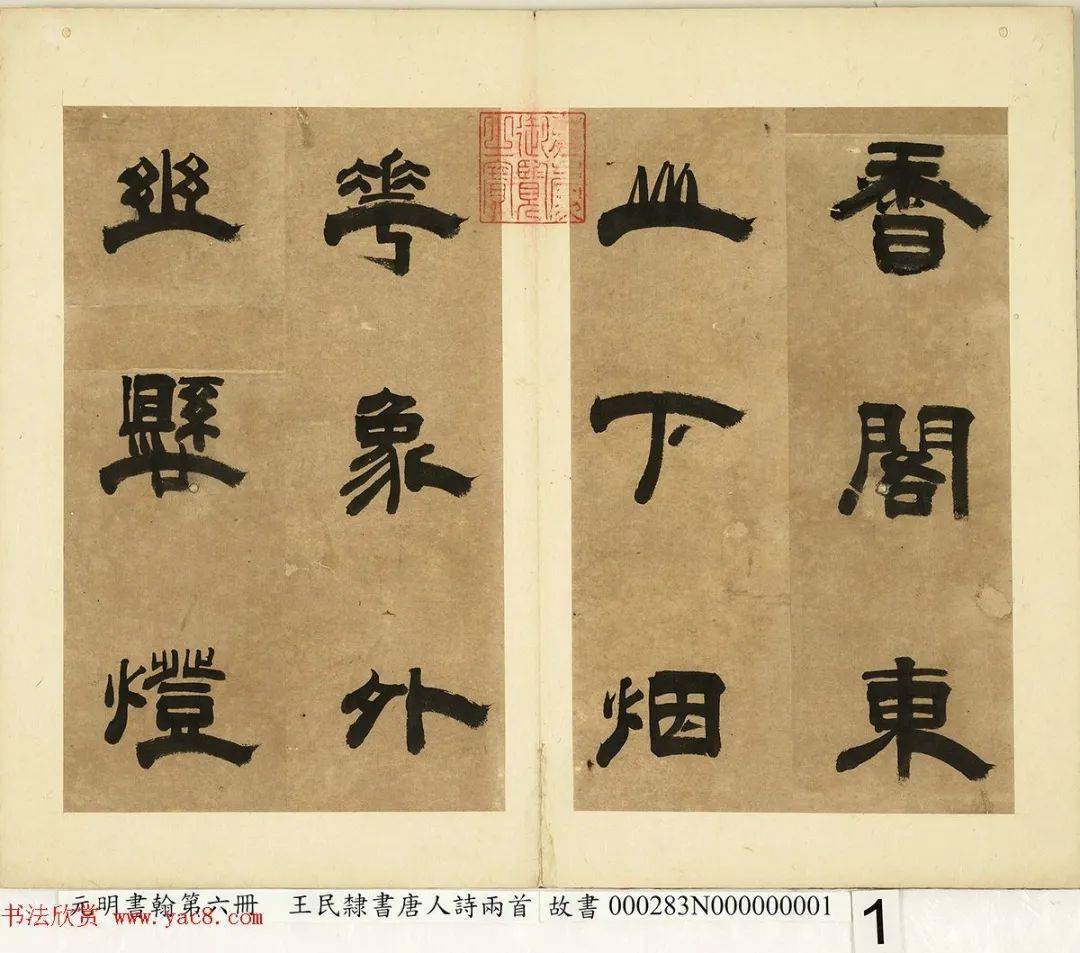 香閣東
山下烟
華象外
幽懸燈
御覽
之寶
元明書翰第六冊 王民隸書唐人詩兩首 故書000283N000000001
1
书法欣赏 www.yac8.com